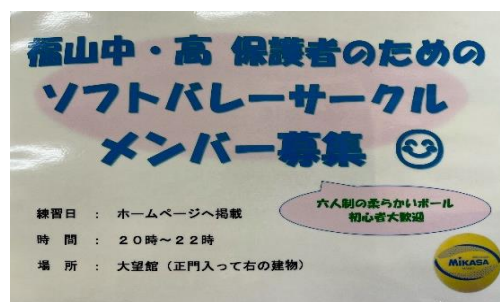 福山中・高 保護者のための
ソフトバレーサークル
メンバー募集
六人制の柔らかいボール
初心者大歓迎
練習日 : ホームページへ掲載
時 間 : 20時~22時
場 所 : 大望館(正門入って右の建物)
MIKASA